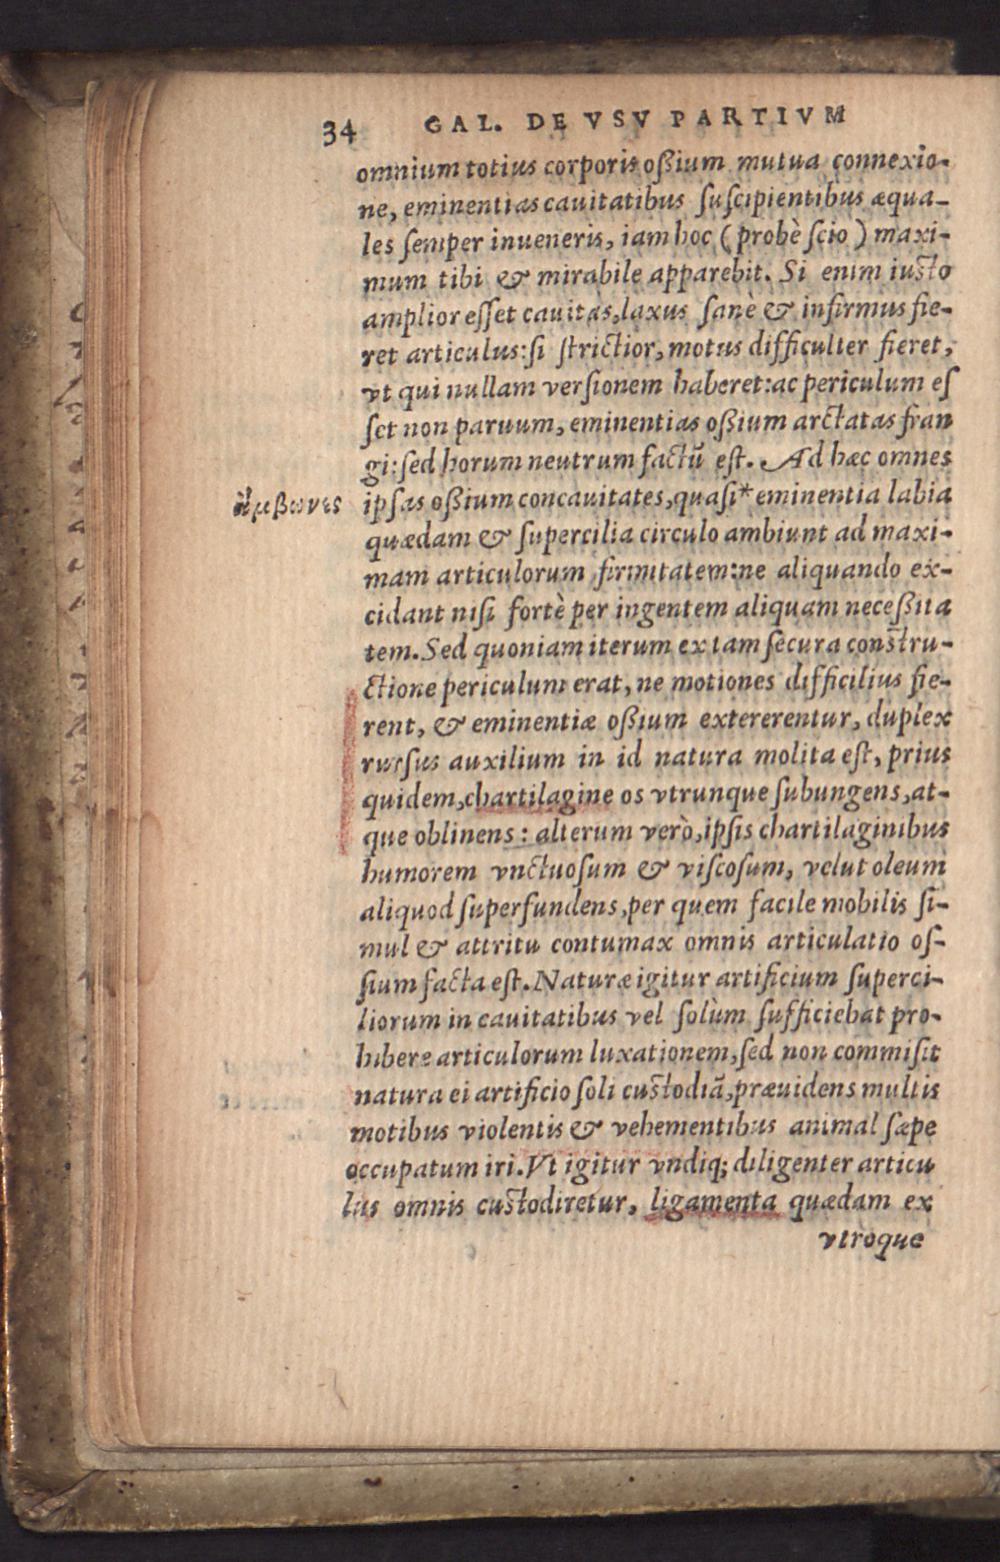 34 GAL. DE VSV PARTIVM
omnium totius corporis oßium mutua connexio-
ne, eminentias cauitatibus ſuſcipientibus æqua-
les ſemper inueneris, iam hoc (probè ſcio) maxi-
mum tibi & mirabile apparebit. Si enim iusto
amplior eſſet cauitas, laxus ſanè & infirmus fie-
ret articulus: ſi ſtrictior, motus difficulter fieret,
vt qui nullam verſionem haberet: ac periculum eſ
ſet non paruum, eminentias oßium arctatas fran
gi: ſed horum neutrum factū eſt. Ad hæc omnes
ἄμβωνες
ipſas oßium concauitates, quaſi* eminentia labia
quædam & ſupercilia circulo ambiunt ad maxi-
mam articulorum firmitatem: ne aliquando ex-
cidant niſi fortè per ingentem aliquam neceßita
tem. Sed quoniam iterum ex tam ſecura constru-
ctione periculum erat, ne motiones difficilius fie-
rent, & eminentiæ oßium extererentur, duplex
rurſus auxilium in id natura molita eſt, prius
quidem, chartilagine os vtrunque ſubungens, at-
que oblinens: alterum verò, ipſis chartilaginibus
humorem vnctuoſum & viſcoſum, velut oleum
aliquod ſuperfundens, per quem facile mobilis ſi-
mul & attritu contumax omnis articulatio oſ-
ſium facta eſt. Naturæ igitur artificium ſuperci-
liorum in cauitatibus vel ſolùm ſufficiebat pro-
hibere articulorum luxationem, ſed non commiſit
natura ei artificio ſoli custodiā, præuidens multis
motibus violentis & vehementibus animal ſæpe
occupatum iri. Vt igitur vndiq; diligenter articu
lus omnis custodiretur, ligamenta quædam ex
vtroque